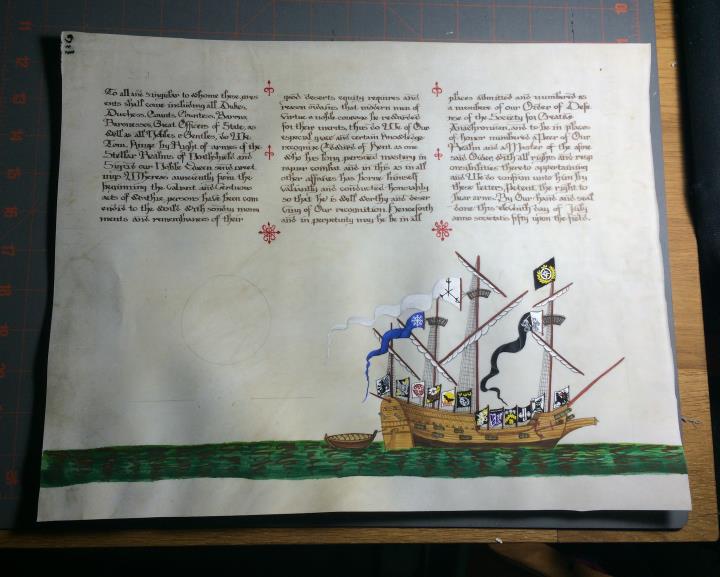 To all and singular to whome these pres
ents shall come including all Dukes,
Duchess, Counts, Countess, Barons,
Baronesses, Great Officers of State, as
well as all Nobles & Gentles, do We
Tom, Kinge by Right of armes of the
Stellar Realms of Northshield and
Sigrid our Noble Queen send greet
ings Whereas aunciently from the
beginning the valiant and vertuous
acts of worthie persons have been com
ended to the world with sondry monu
ments and remembrances of their
good deserts equity requires and
reason ordains that modern men of
virtue & noble courage be rewarded
for their merits, thus do We of Our
especial grace and certain knowledge
recognize of Kent as one
who has long pursued mastery in
rapier combat and in this as in all
other affaires has borne himself
valiantly and conducted honorably
so that he is well worthy and deser
ving of Our recognition. Henceforth
and in perpetuity may he be in all
places admitted and numbered as
a membere of our Order of Defe
nse of the Society for Creative
Anachronism, and to be in places
of honor numbered Peer of Our
Realm and Master of the afore
said Order with all rights and resp
onsibilities thereto appertaining
and We do confirm unto him by
these letters Patent the right to
bear arms. By Our hand and seal
done this eleventh day of July
anno societatis fifty upon the field.